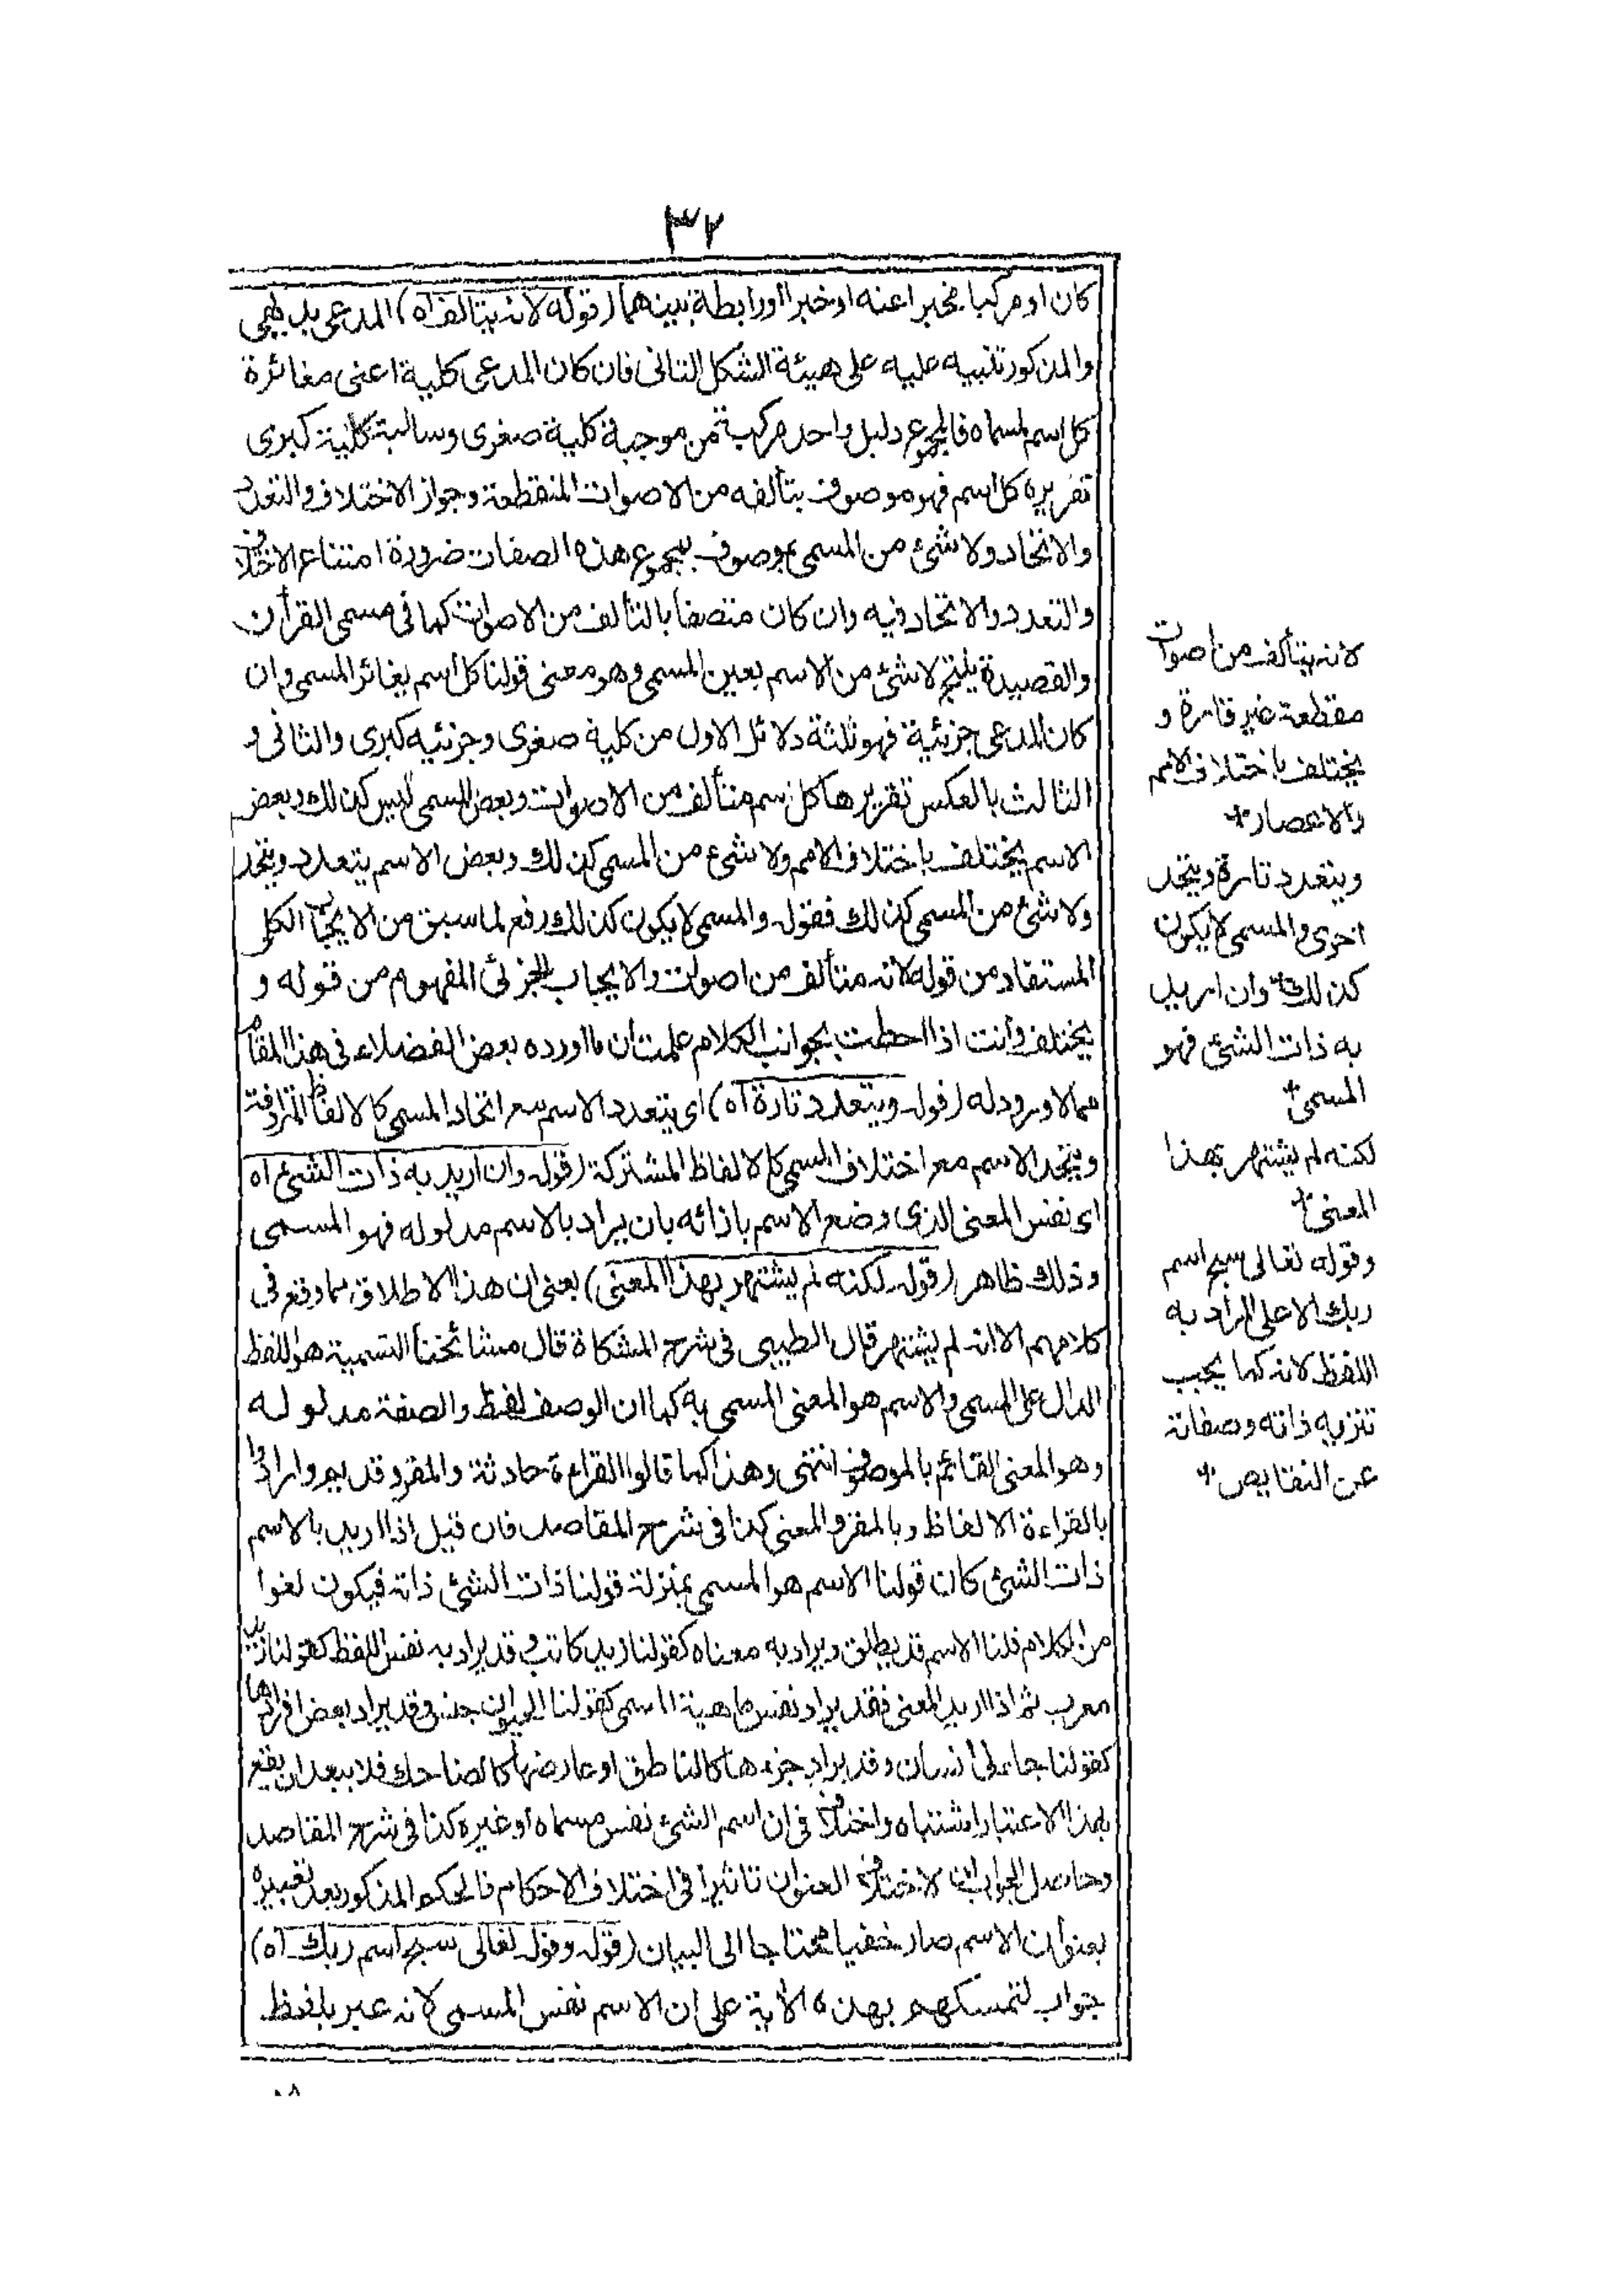 ٣٢
كان او مركبا مخبرا عنه او خبرا اورابطة بينهما (قوله لانه يتالف آه) المدعى بديهى
والمذكور تنبيه عليه على هيئة الشكل الثانى فان كان المدعى كلية اعنى مغائرة
كل اسم لمسماه فالمجموع دليل واحد مركبة من موجبة كلية صغرى وسالبة كلية كبرى
تقريره كل اسم فهو موصوف بتألفه من الاصوات المنقطعة وجواز الاختلاف والتعدد
والاتحاد ولا شئ من المسمى بموصوف بمجموع هذه الصفات ضرورة امتناع الاختلاف
والتعدد والاتحاد فيه وان كان متصفا بالتألف من الاصوات كما فى مسمى القرأن
والقصيدة ينتج لا شئ من الاسم بعين المسمى وهو معنى قولنا كل اسم يغائر المسمى وان
كان المدعى جزئية فهو ثلثة دلائل الاول من كلية صغرى وجزئيه كبرى والثانى و
الثالث بالعكس تقريرها كل اسم متألف من الاصوات وبعض المسمى ليس كذلك وبعض
الاسم يختلف باختلاف الامم ولا شئ من المسمى كذلك وبعض الاسم يتعدد ويتحد
ولا شئ من المسمى كذلك فقوله والمسمى لا يكون كذلك رفع لما سبق من الايجاب الكلى
المستفاد من قوله لانه متألف من اصوات والايجاب الجزئى المفهوم من قوله و
يختلف وأنت اذا احطت بجوانب الكلام علمت أن ما اورده بعض الفضلاء فى هذا المقام
مما لا ورود له (قوله ويتعدد تارة آه) اى يتعدد الاسم مع اتحاد المسمى كالالفاظ المترادفة
ويتحد الاسم مع اختلاف المسمى كالالفاظ المشتركة (قوله وان اريد به ذات الشئ آه
اى نفس المعنى الذى وضع الاسم بازائه بان يراد بالاسم مدلوله فهو المسمى
وذلك ظاهر (قوله لكنه لم يشتهر بهذا المعنى) يعنى ان هذا الاطلاق مما وقع فى
كلامهم الا انه لم يشتهر قال الطيبى فى شرح المشكاة قال مشائخنا التسمية هو اللفظ
الدال على المسمى والاسم هو المعنى المسمى به كما ان الوصف لفظ والصفة مدلوله
وهو المعنى القائم بالموصوف انتهى وهذا كما قالوا القراءة حادثة والمقرو قديم وارادوا
بالقراءة الالفاظ وبالمقرو المعنى كذا فى شرح المقاصد فان قيل اذا اريد بالاسم
ذات الشئ كان قولنا الاسم هو المسمى بمنزلة قولنا ذات الشئ ذاته فيكون لغوا
من الكلام قلنا الاسم قد يطلق ويراد به معناه كقولنا زيد كاتب وقد يراد به نفس اللفظ كقولنا زيد
معرب ثم اذا اريد المعنى فقد يراد نفس ماهية المسمى كقولنا الحيوان جنس وقد يراد بعض افرادها
كقولنا جاءنى انسان وقد يراد جزءها كالناطق او عارضها كالضاحك فلا يبعد ان يقع
بهذا الاعتبار اشتباه واختلاف فى ان اسم الشئ نفس مسماه او غيره كذا فى شرح المقاصد
وحاصل الجواب ان لاختلاف العنوان تاثيرا فى اختلاف الاحكام فالحكم المذكور بعد تعبيره
بعنوان الاسم صار خفيا محتاجا الى البيان (قوله وقوله تعالى سبح اسم ربك آه)
جواب لتمسكهم بهذه الأية على ان الاسم نفس المسمى لانه عبر بلفظ
لانه يتألف من اصوات
مقطعة غير قارة و
يختلف باختلاف الامم
والاعصار
ويتعدد تارة ويتحد
اخرى والمسمى لا يكون
كذلك وان اريد
به ذات الشئ فهو
المسمى
لكنه لم يشتهر بهذا
المعنى
وقوله تعالى سبح اسم
ربك الاعلى المراد به
اللفظ لانه كما يجب
تنزيه ذاته وصفاته
عن النقايص